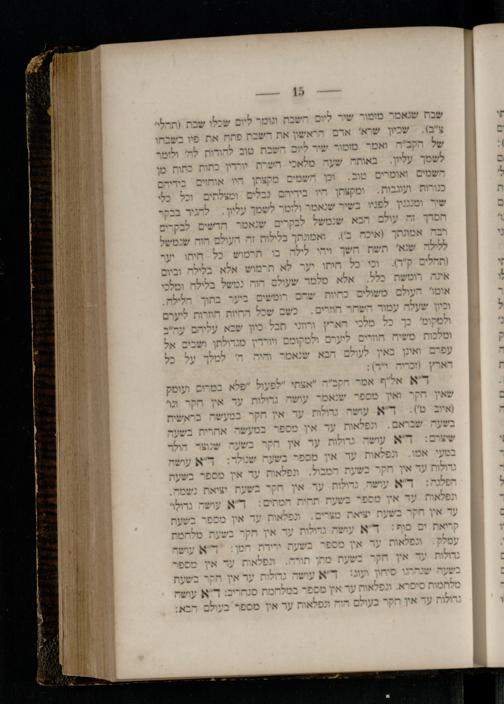 — 15 —
שבת שנאמר מזמור שיר ליום השבת ונומר ליום שכלו שבת (תהלי׳
צ״ב). שכיון שרא׳ אדם הראשון את השבת פתח את פיו בשבחו
של הקב״ה ואמר מזמור שיר ליום השבת טוב להודות לה׳ ולזמר
לשמך עליון. באותה שעה מלאכי השרת יורדין כתות כתות מן
השמים ואומרים טוב. וכן השמים מקצתן היו אוחזים בידיהם
כנורות ועוגבות. ומקצתן היו בידיהם נבלים ומצלתים וכל כלי
שיר ומנגנין לפניו בשיר שנאמר ולזמר לשמך עליון. להגיד בבקר
חסדך זה עולם הבא שנמשל לבקרים שנאמר חדשים לבקרים
רבה אמונתך (איכה ג׳). ואמונתך בלילות זה העולם הזה שנמשל
ללילה שנא׳ תשת חשך ויהי לילה בו תרמוש כל חיתו יער
(תהלים ק״ד). וכי כל חיתו יער לא תרמוש אלא בלילה וביום
אינה רומשת כלל. אלא מלמד שעולם הזה נמשל בלילה ומלכי
אומו׳ העולם משולים כחיות שהם רומשים ביער בתוך הלילה.
וכיון שעלה עמוד השחר חוזרים. כשם שכל החיות חוזרות ליערם
ולמקומ׳ כך כל מלכי הארץ ורוזני תבל כיון שבא עליהם עה״ב
ומלכות משיח חוזרים ליערם ולמקומם ויורדין מגדולתן ושבים אל
עפרם ואינן באין לעולם הבא שנאמר והיה ה׳ למלך על כל
הארץ (זכריה י״ד):
ד״א אל״ף אמר הקב״ה ״אצתי ״לפעול ״פלא במרום ועומק
שאין חקר ואין מספר שנאמר עושה גדולות עד אין חקר וגו׳
(איוב ט׳): ד״א עושה גדולות עד אין חקר במעשה בראשית
בשעה שבראם. ונפלאות עד אין מספר במעשה אחרית בשעה
שיצרם: ד״א עושה גדולות עד אין חקר בשעה שנוצר הולד
במעי אמו. ונפלאות עד אין מספר בשעה שנולד: ד״א עושה
גדולות עד אין חקר בשעת המבול. ונפלאות עד אין מספר בשעת
הפלגה: ד״א עושה גדולות עד אין חקר בשעת יציאת נשמה.
ונפלאות עד אין מספר בשעת תחית המתים: ד״א עושה גדולו׳
עד אין חקר בשעת יציאת מצרים. ונפלאות עד אין מספר בשעת
קריאת ים סוף: ד״א עושה גדולות עד אין חקר בשעת מלחמת
עמלק. ונפלאות עד אין מספר בשעת ירידת המן: ד״א עושה
גדולות עד אין חקר בשעת מתן תורה. ונפלאות עד אין מספר
בשעה שנהרגו סיחון ועוג: ד״א עושה גדולות עד אין חקר בשעת
מלחמות סיסרא. ונפלאות עד אין מספר במלחמת סנחריב: ד״א עושה
גדולות עד אין חקר בעולם הזה ונפלאות עד אין מספר בעולם הבא: